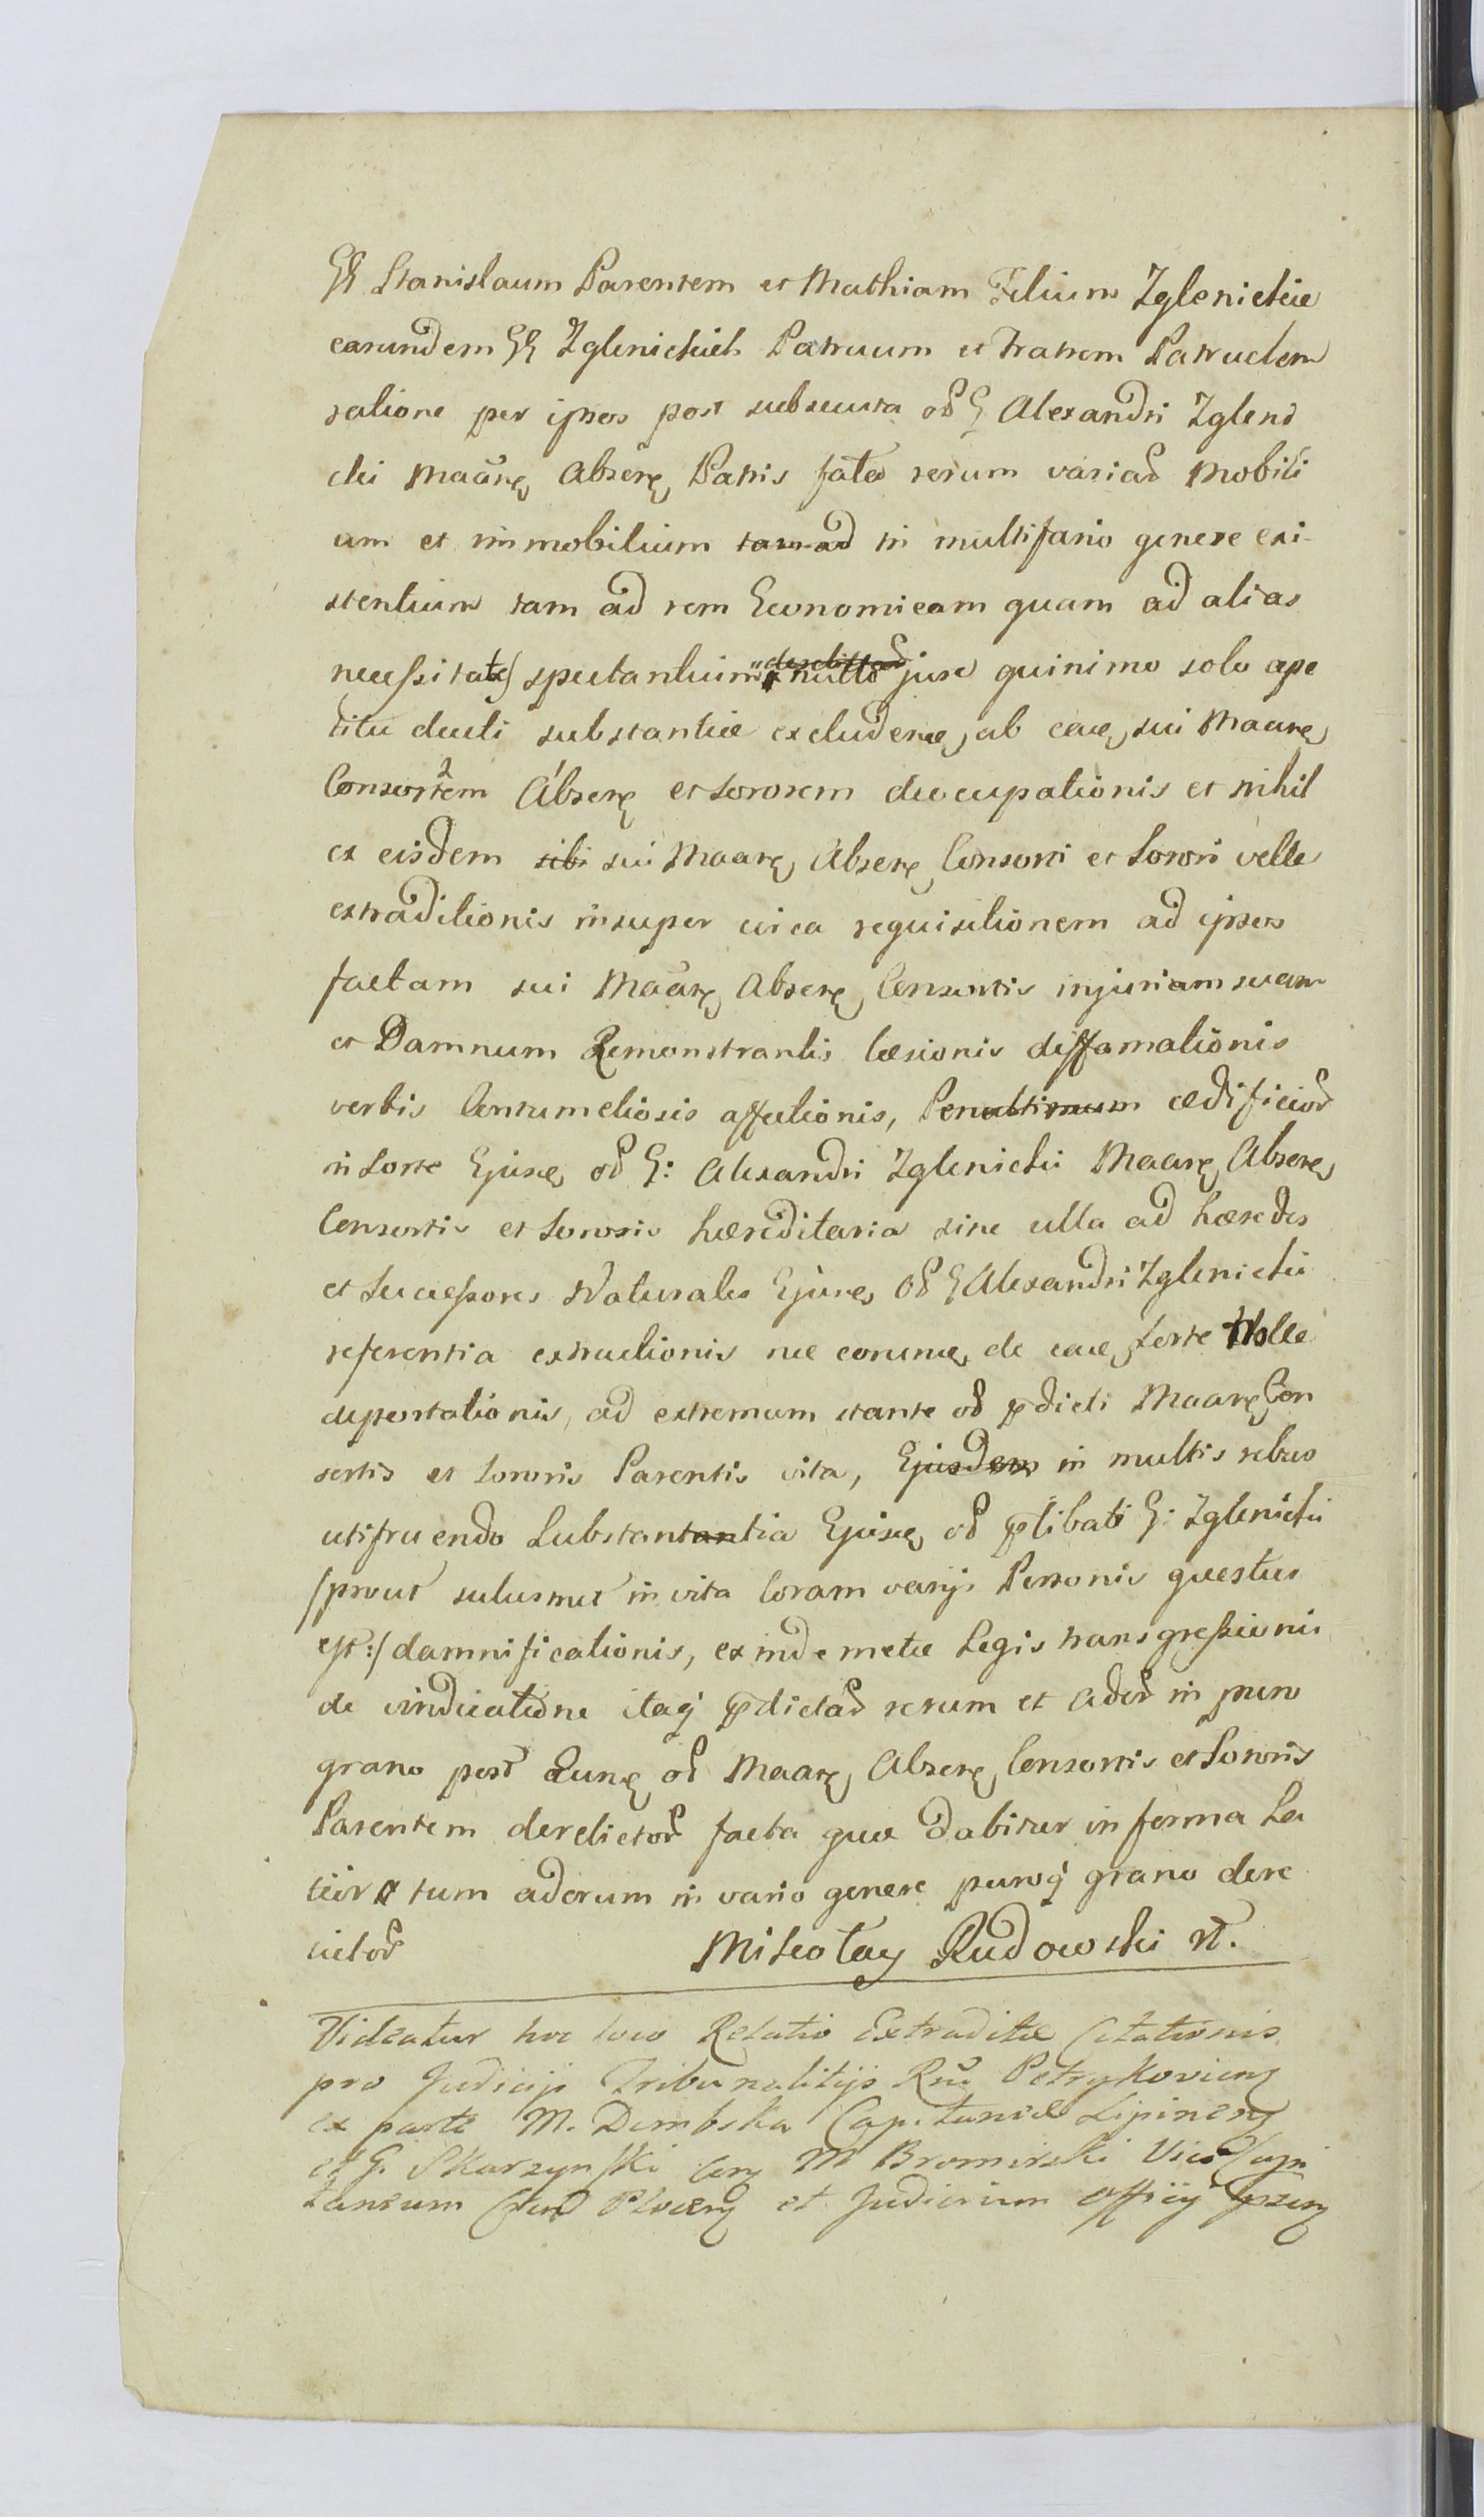 GG Stanislaum Parentem et Mathiam Filium Zglenickie
earundem GG Zglenickich Patruum et Fratrem Patruelem
ratione per ipsos post subsecuta od G Alexandri Zgleni
cki Maarę Absere Patris fata rerum variar Mobili
um et immobilium tam ad in multifario genere exi-
stentium tam ad rem Economicam quam ad alias
necessitates spectantium derelictar nullo jure quinimo solo ape
titu ducti substantiæ excludenæ, ab eaę, sui Maaræ
Consortem Absere et Sororem deocupationis et nihil
ex eisdem sibi sui Maaræ Absere Consorti et Sorori velle
extraditionis insuper circa requisitionem ad ipsos
factam sui Maaræ Absere Consortis injuriam suam
et Damnum Remonstrantis læsionis diffamationis
verbis Contumeliosis affectionis, Penultimum ædificior
in Sorte Ejusę od G: Alexandri Zglenicki Maaræ Absere
Consortis et Sororis hæreditaria sine ulla ad hæredes
et Successores Naturales Ejusę Od G Alexandri Zglenicki
referentia extructionis nec eorumę de eaę Sorte Nolle
deportationis, ad extremum stante od pdicti Maaræ Con
sortis et Sororis Parentis vita, Ejusdem in multis rebus
utifruendo Substantantia Ejusę od plibati G: Zglenicki
/prout solusmet in vita Coram varijs Personis questus
est:/ damnificationis, exinde metæ Legis transgressionis
de vindicatione itaq pdictar rerum et ador in puro
grano post Eunę od Maaræ Absere Consortis et Sororis
Parentem derelictor facta quæ dabitur in forma La
tior tum adorum in vario genere puroq grano dere
lictor Mikołay Rudowski
Videatur hoc loco Relatio Extraditæ Citationis
pro Judicijs Tribunalitijs Petrykoviens
ex parte M. Dembska Capitaneæ Lipinens
et G. Skarzynski M Bromirski Vice Capi
taneum Plocens et Judicium Officij